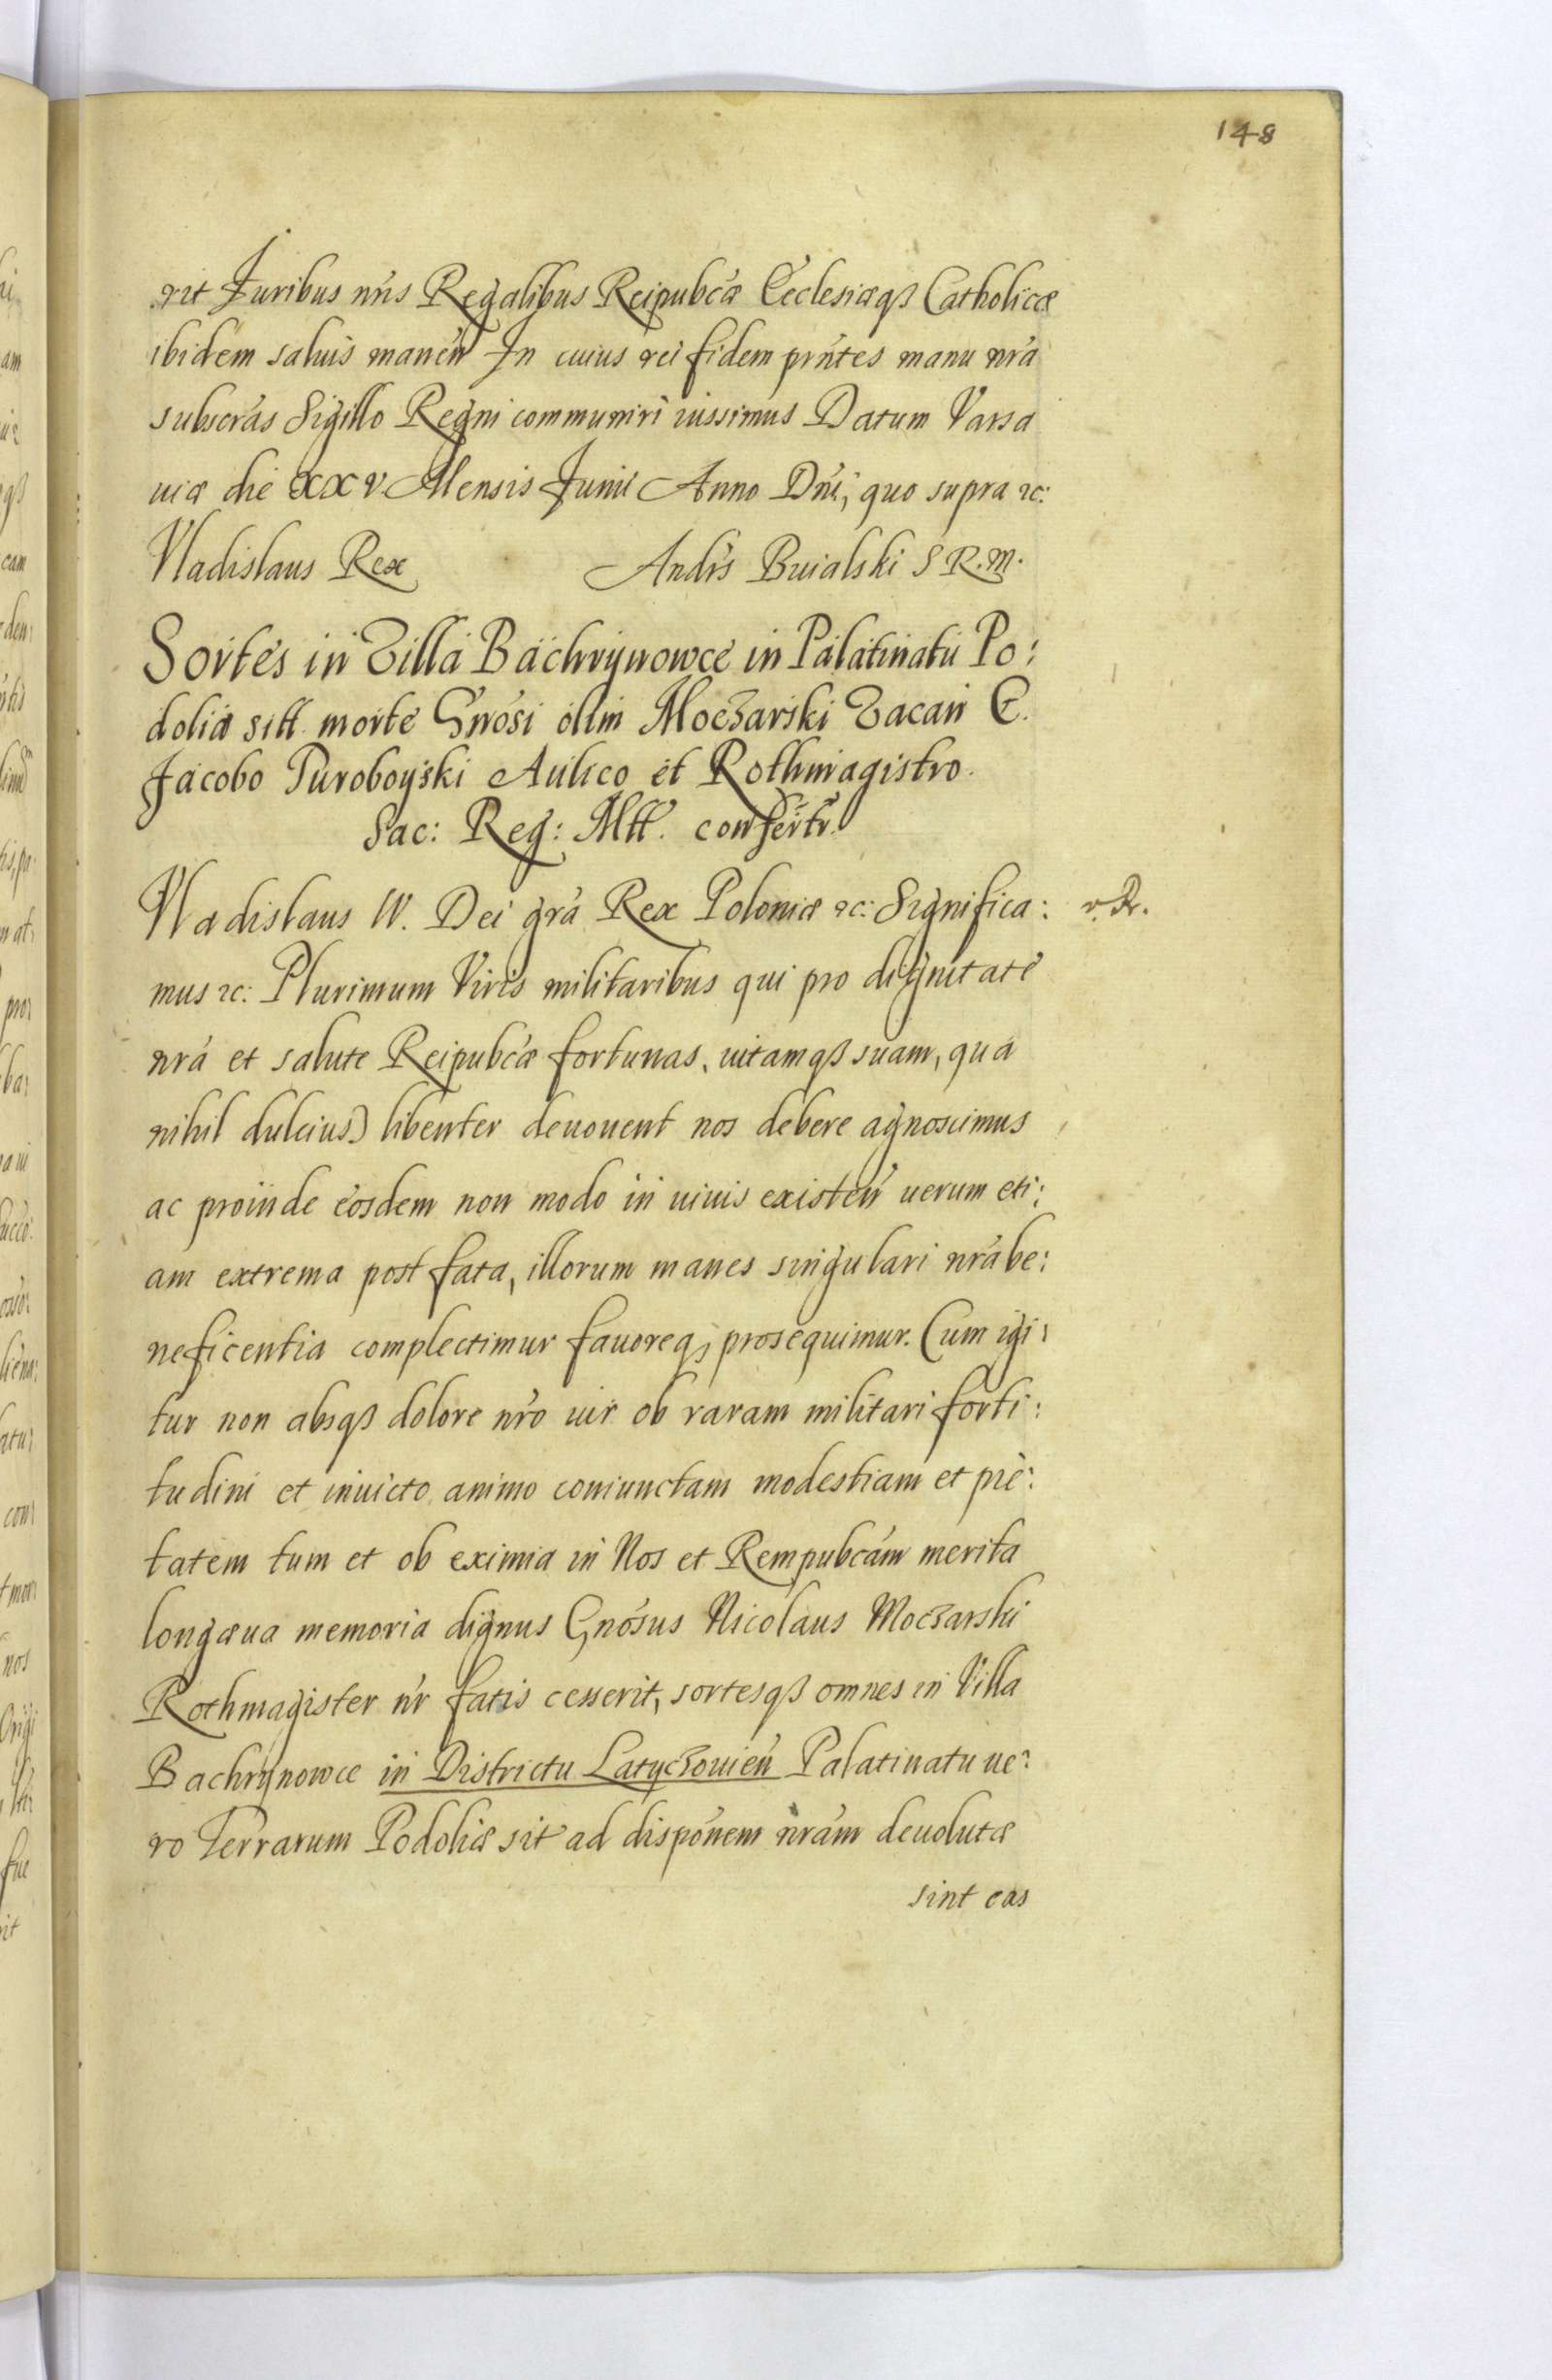 148
rit Juribus nris Regalibus Reipubcæ Ecclesiæqß Catholicæ
ibidem saluis manen̄ In cuius rei fidem prntes manu nra
subscras Sigillo Regni communiri iussimus Datum Varsa
uiæ die XXV Mensis Junii Anno Dni, quo supra ꝛc:
Vladislaus Rex Andrs Buialski S R. M.
Sortes in Villa Bachrynowce in Palatinatu Po:
doliæ sitt morte Gnosi olim Moczarski Vacan G.
Jacobo Puroboyski Aulico et Rothmagistro
Sac: Reg: Mtt. confertr
Vladislaus IV. Dei gra Rex Poloniæ ꝛc: Significa: v. R.
mus ꝛc: Plurimum Viris militaribus qui pro dignitate
nra et salute Reipubcæ fortunas, uitamqß suam, qua
nihil dulcius) libenter deuouent nos debere agnoscimus
ac proinde eosdem non modo in uiuis existen̄ uerum eti:
am extrema post fata, illorum manes singulari nra be:
neficentia complectimur fauoreqȝ prosequimur. Cum igi:
tur non absqß dolore nro uir ob raram militari forti:
tudini et inuicto animo coniunctam modestiam et pie:
tatem tum et ob eximia in Nos et Rempubcam merita
longæua memoria dignus Gnosus Nicolaus Moczarski
Rothmagister nr fatis cesserit, sortesqß omnes in Villa
Bachrynowce in Districtu Latyczouien̄ Palatinatu ue:
ro Terrarum Podoliæ sit ad disponem nram deuolutæ
sint eas